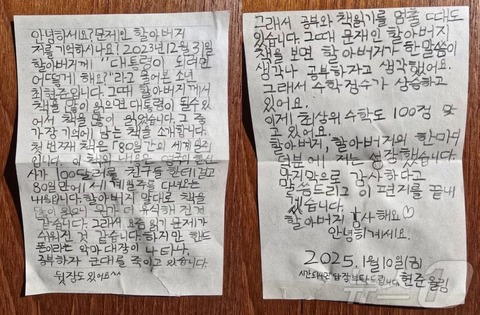 안녕하세요? 문재인 할아버지
저를 기억하시나요? 2023년 12월 31일
할아버지께 "대통령이 되려면
어떻게 해요?"라고 물어본 소년
최현준입니다. 그때 할아버지께서
책을 많이 읽으면 대통령이 될 수 있
어서 책을 많이 읽었습니다. 그 중
가장 기억에 남는 책을 소개합니다.
첫 번째 책은 「80일간의 세계일주」
입니다. 이 책의 내용은
사가 100달러를 친구들한테 걸고
80일만에 세계일주를 다녀오는
내용입니다. 할아버지 말대로 책을
많이 읽으니 뭔가 더 유식해진 것
같습니다. 그래서 요즘 읽기 문제가
쉬워진 것 같습니다. 하지만 핸드
폰이라는 악마 대장이 나타나,
공부하자 군대를 죽이고 있습니다.
뒷장도 있어요^^
그래서 공부와 책읽기를 멈출 때도
있습니다. 그때 문재인 할아버지
책을 보면 할아버지가 한 말씀이
생각나 공부하자고 생각했어요.
그래서 수학 점수가 상승하고
있어요.
이제 최상위수학도 100점 맞
고 있어요.
할아버지, 할아버지의 한마디
덕분에 저는 성장했습니다.
마지막으로 감사하다고
말씀드리고 이 편지를 끝내
겠습니다.
할아버지 감사해요♡
안녕히계세요.
2025. 1월 10일(금)
시간되시면 답장 부탁드립니다. 현준 올림
뉴스1